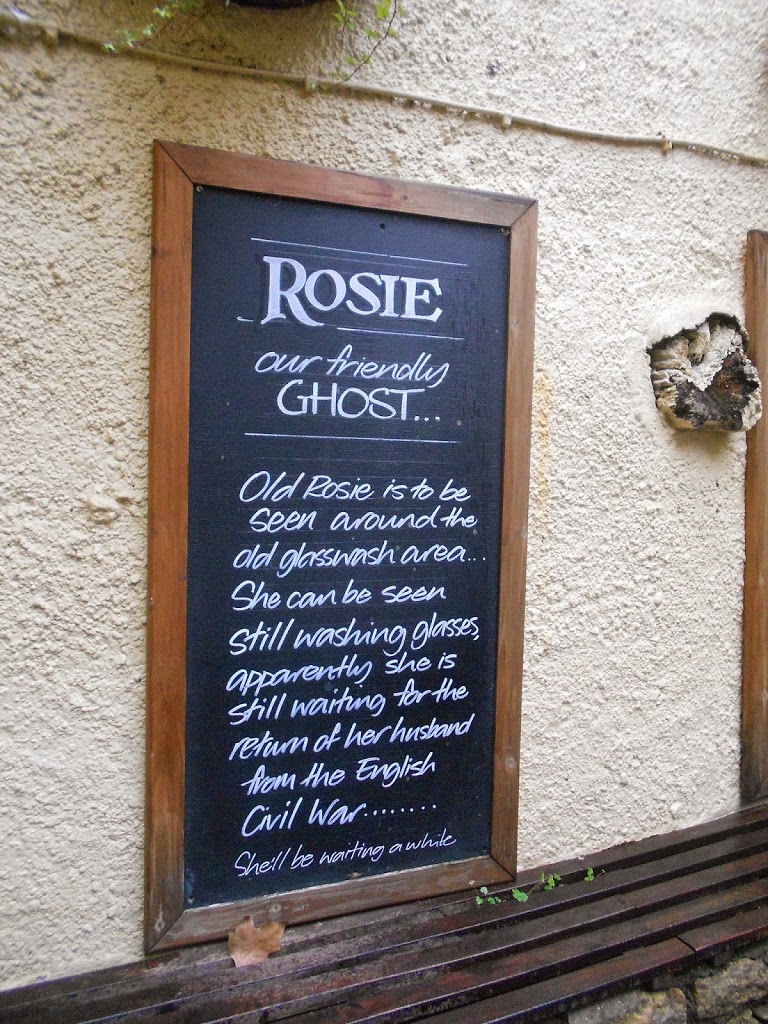 ROSIE
our friendly
GHOST...
Old Rosie is to be
seen around the
old glasswash area...
She can be seen
still washing glasses,
apparently she is
still waiting for the
return of her husband
from the English
Civil War........
She'll be waiting a while